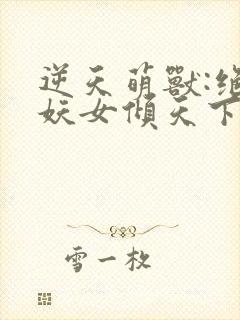 逆天萌獸:絕
妖女傾天下
雪一枚